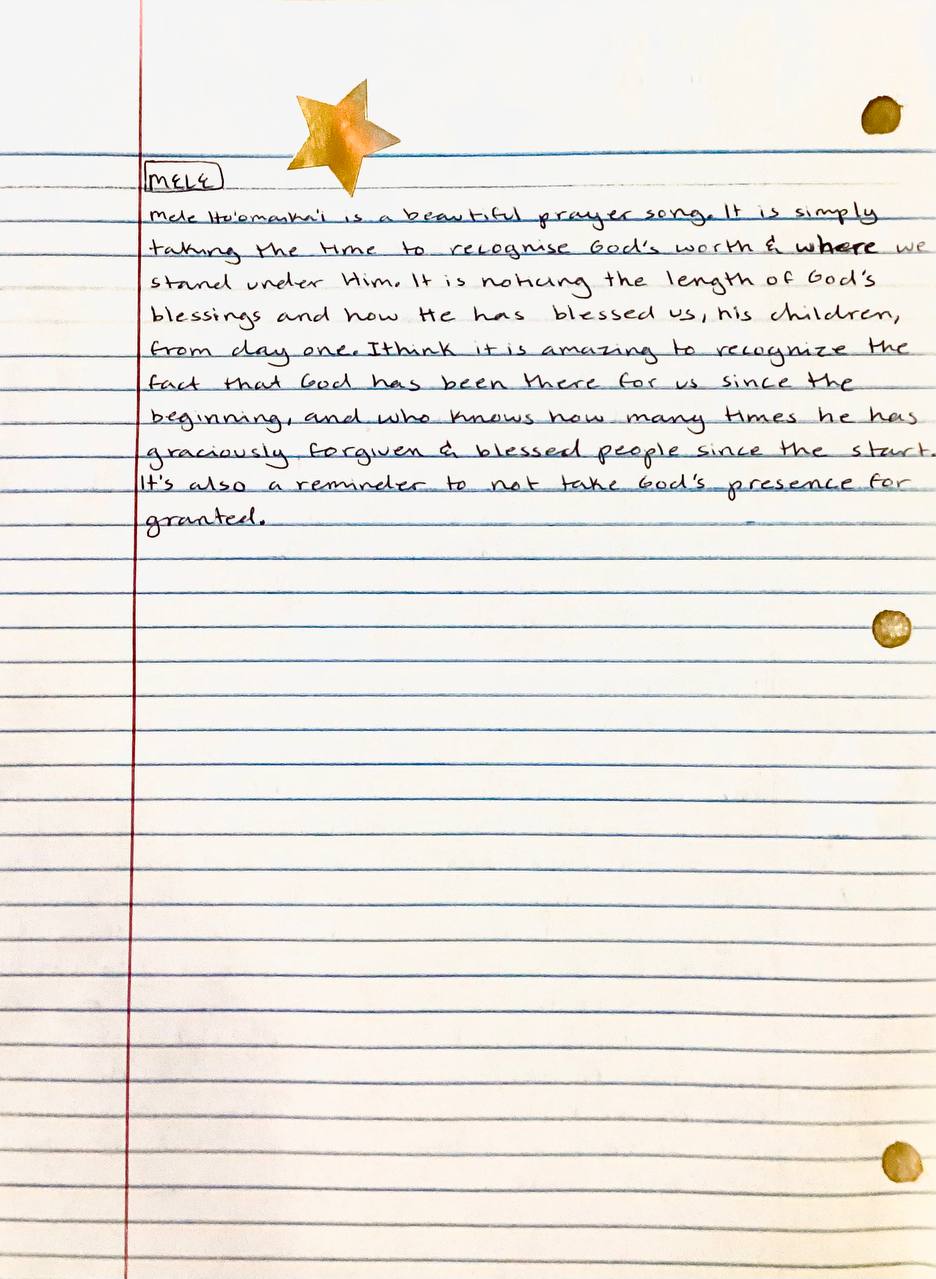 MELE
Mele Ho'omaika'i is a beautiful prayer song. It is simply
taking the time to recognise God's worth & where we
stand under Him. It is noticing the length of God's
blessings and how He has blessed us, his children,
from day one. I think it is amazing to recognize the
fact that God has been there for us since the
beginning, and who knows how many times he has
graciously forgiven & blessed people since the start.
It's also a reminder to not take God's presence for
granted.